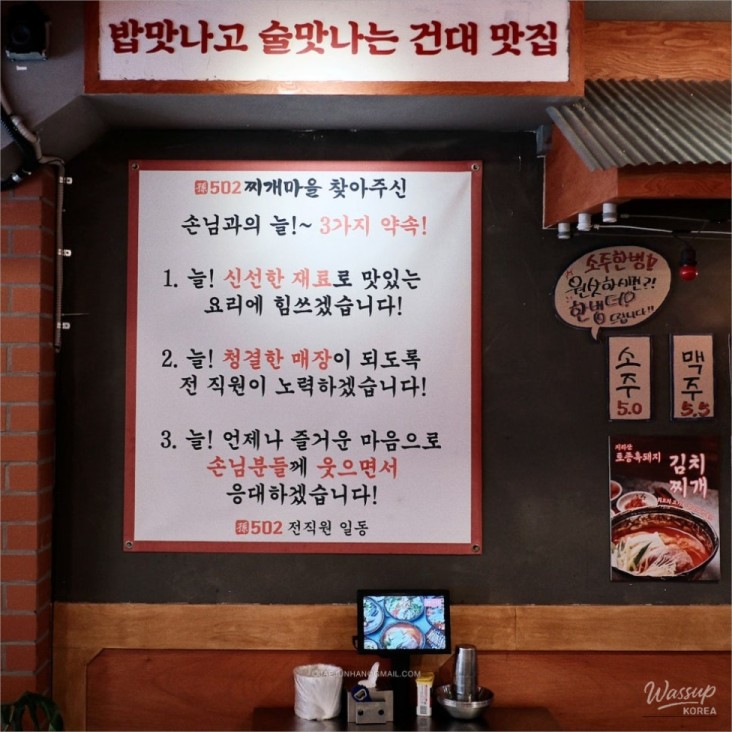 밥맛나고 술맛나는 건대 맛집
502 찌개마을 찾아주신
손님과의 늘!~ 3가지 약속!
1. 늘! 신선한 재료로 맛있는
요리에 힘쓰겠습니다!
2. 늘! 청결한 매장이 되도록
전 직원이 노력하겠습니다!
3. 늘! 언제나 즐거운 마음으로
손님분들께 웃으면서
응대하겠습니다!
502 전직원 일동
소주한병을
원샷하시면?!
한병더?
드립니다!!
소주
5.0
맥주
5.5
지리산
토종흑돼지
김치
찌개
Wassup
KOREA